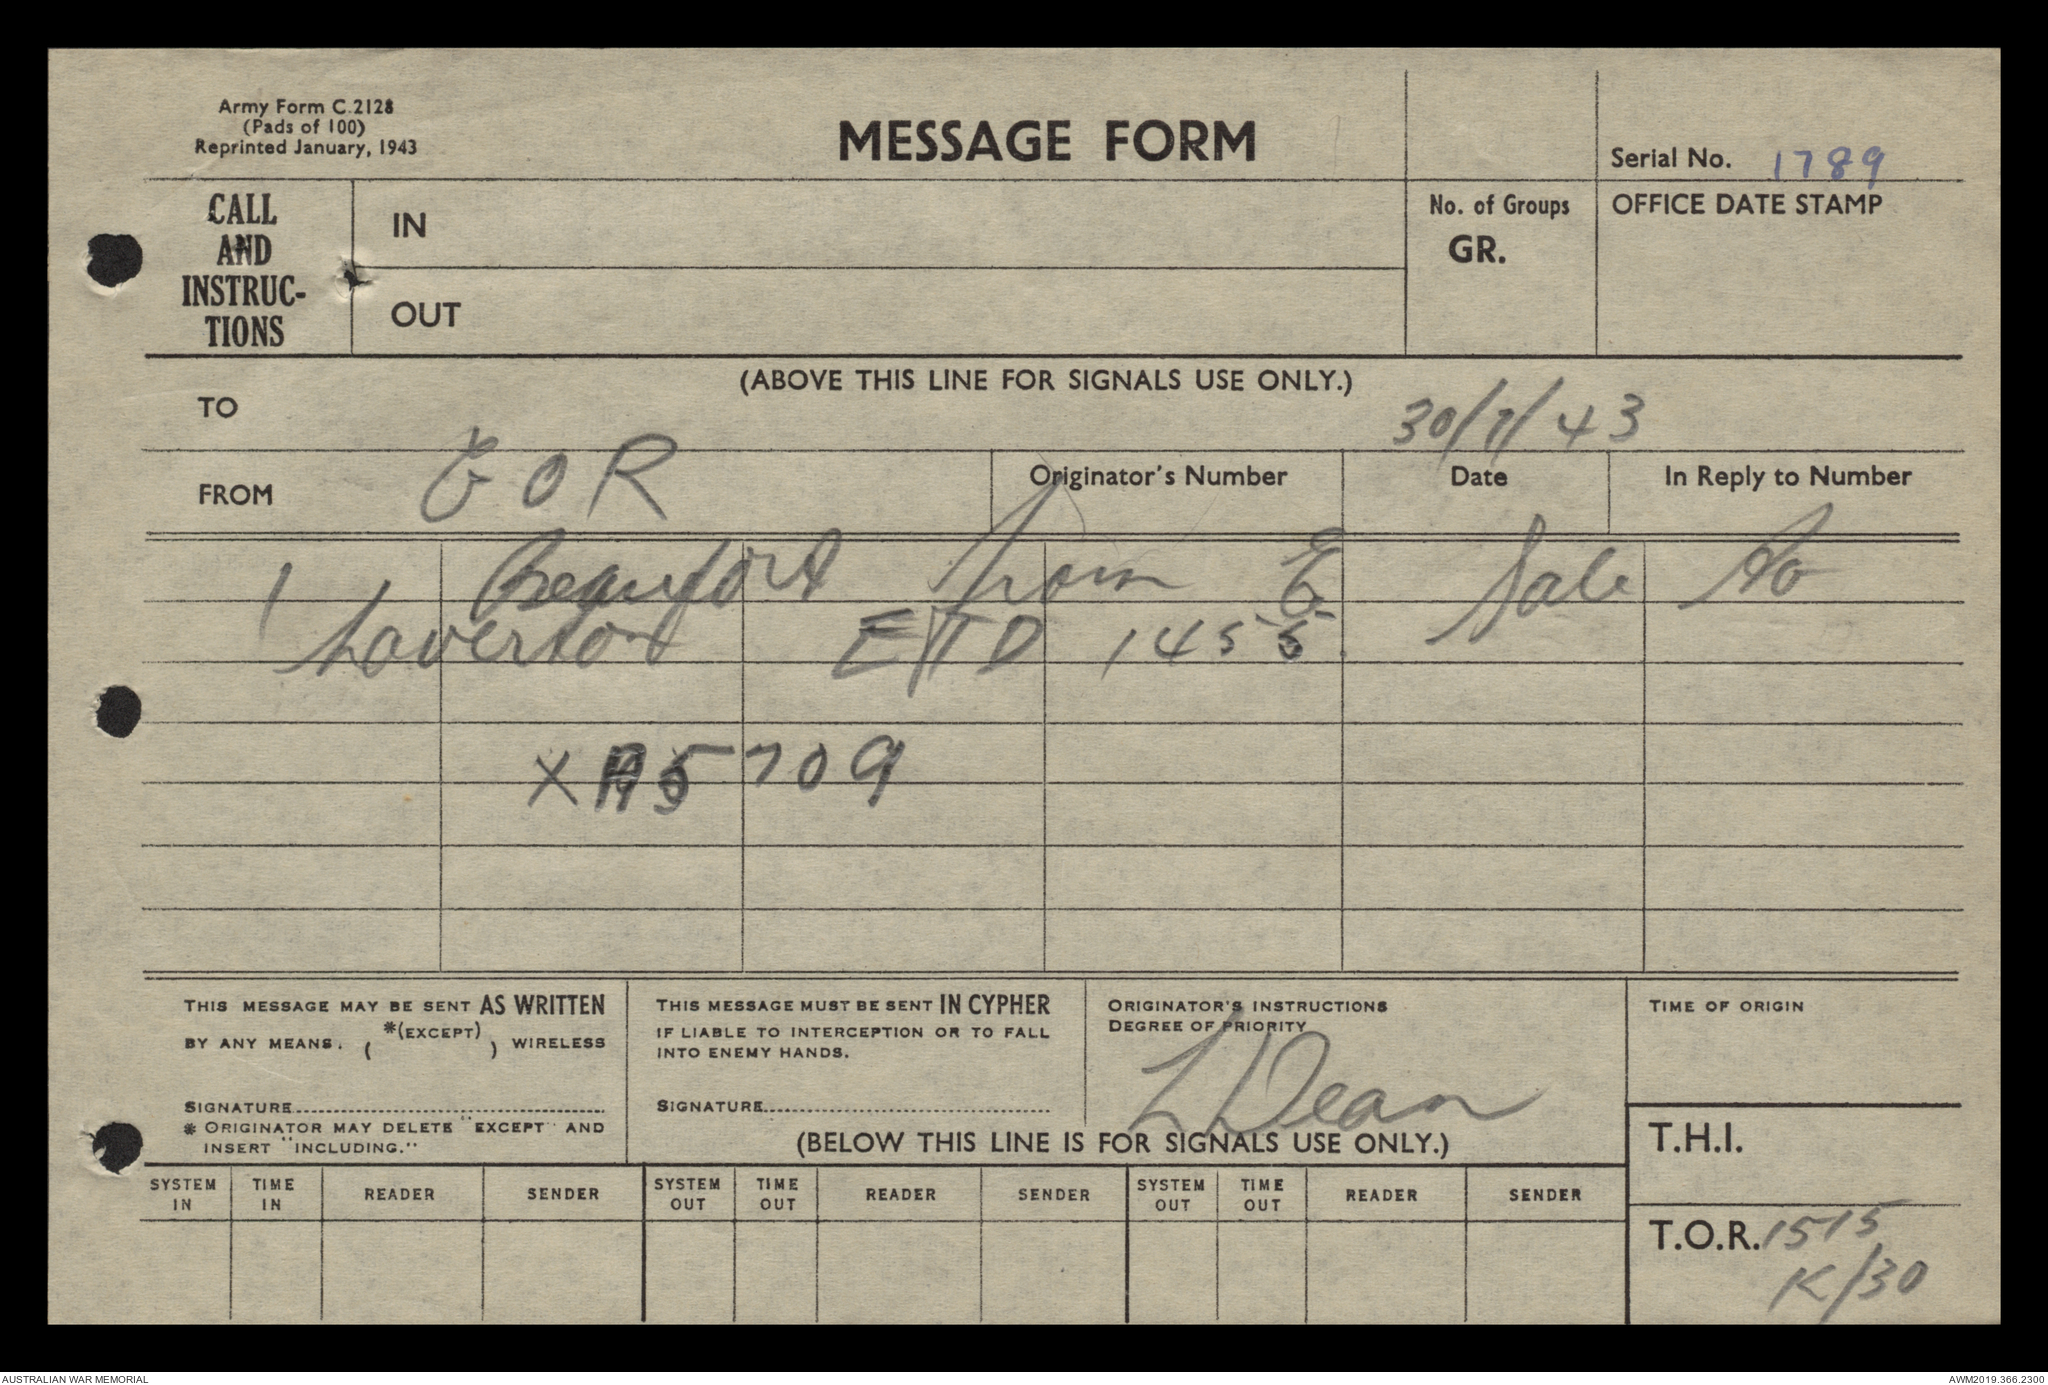 Army Form C.2128
(Pads of 100)
Reprinted January, 1943
MESSAGE FORM
Serial No. 1789
CALL
AND
INSTRUC-
TIONS
IN
OUT
No. of Groups
GR.
OFFICE DATE STAMP
(ABOVE THIS LINE FOR SIGNALS USE ONLY.)
TO
30/7/43
FROM
E O R
Originator's Number
Date
In Reply to Number
1 Beaufort from E Sale to
Laverton ETD 1455.
X A5709
THIS MESSAGE MAY BE SENT AS WRITTEN
BY ANY MEANS. ( *(EXCEPT) ) WIRELESS
SIGNATURE
* ORIGINATOR MAY DELETE "EXCEPT" AND
INSERT "INCLUDING."
THIS MESSAGE MUST BE SENT IN CYPHER
IF LIABLE TO INTERCEPTION OR TO FALL
INTO ENEMY HANDS.
SIGNATURE
ORIGINATOR'S INSTRUCTIONS
DEGREE OF PRIORITY
L Dean
TIME OF ORIGIN
(BELOW THIS LINE IS FOR SIGNALS USE ONLY.)
T.H.I.
SYSTEM IN
TIME IN
READER
SENDER
SYSTEM OUT
TIME OUT
READER
SENDER
SYSTEM OUT
TIME OUT
READER
SENDER
T.O.R. 1515
K/30
AUSTRALIAN WAR MEMORIAL
AWM2019.366.2300